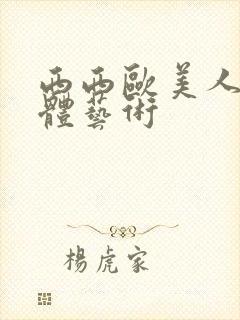 西西歐美人
體藝術
楊虎家